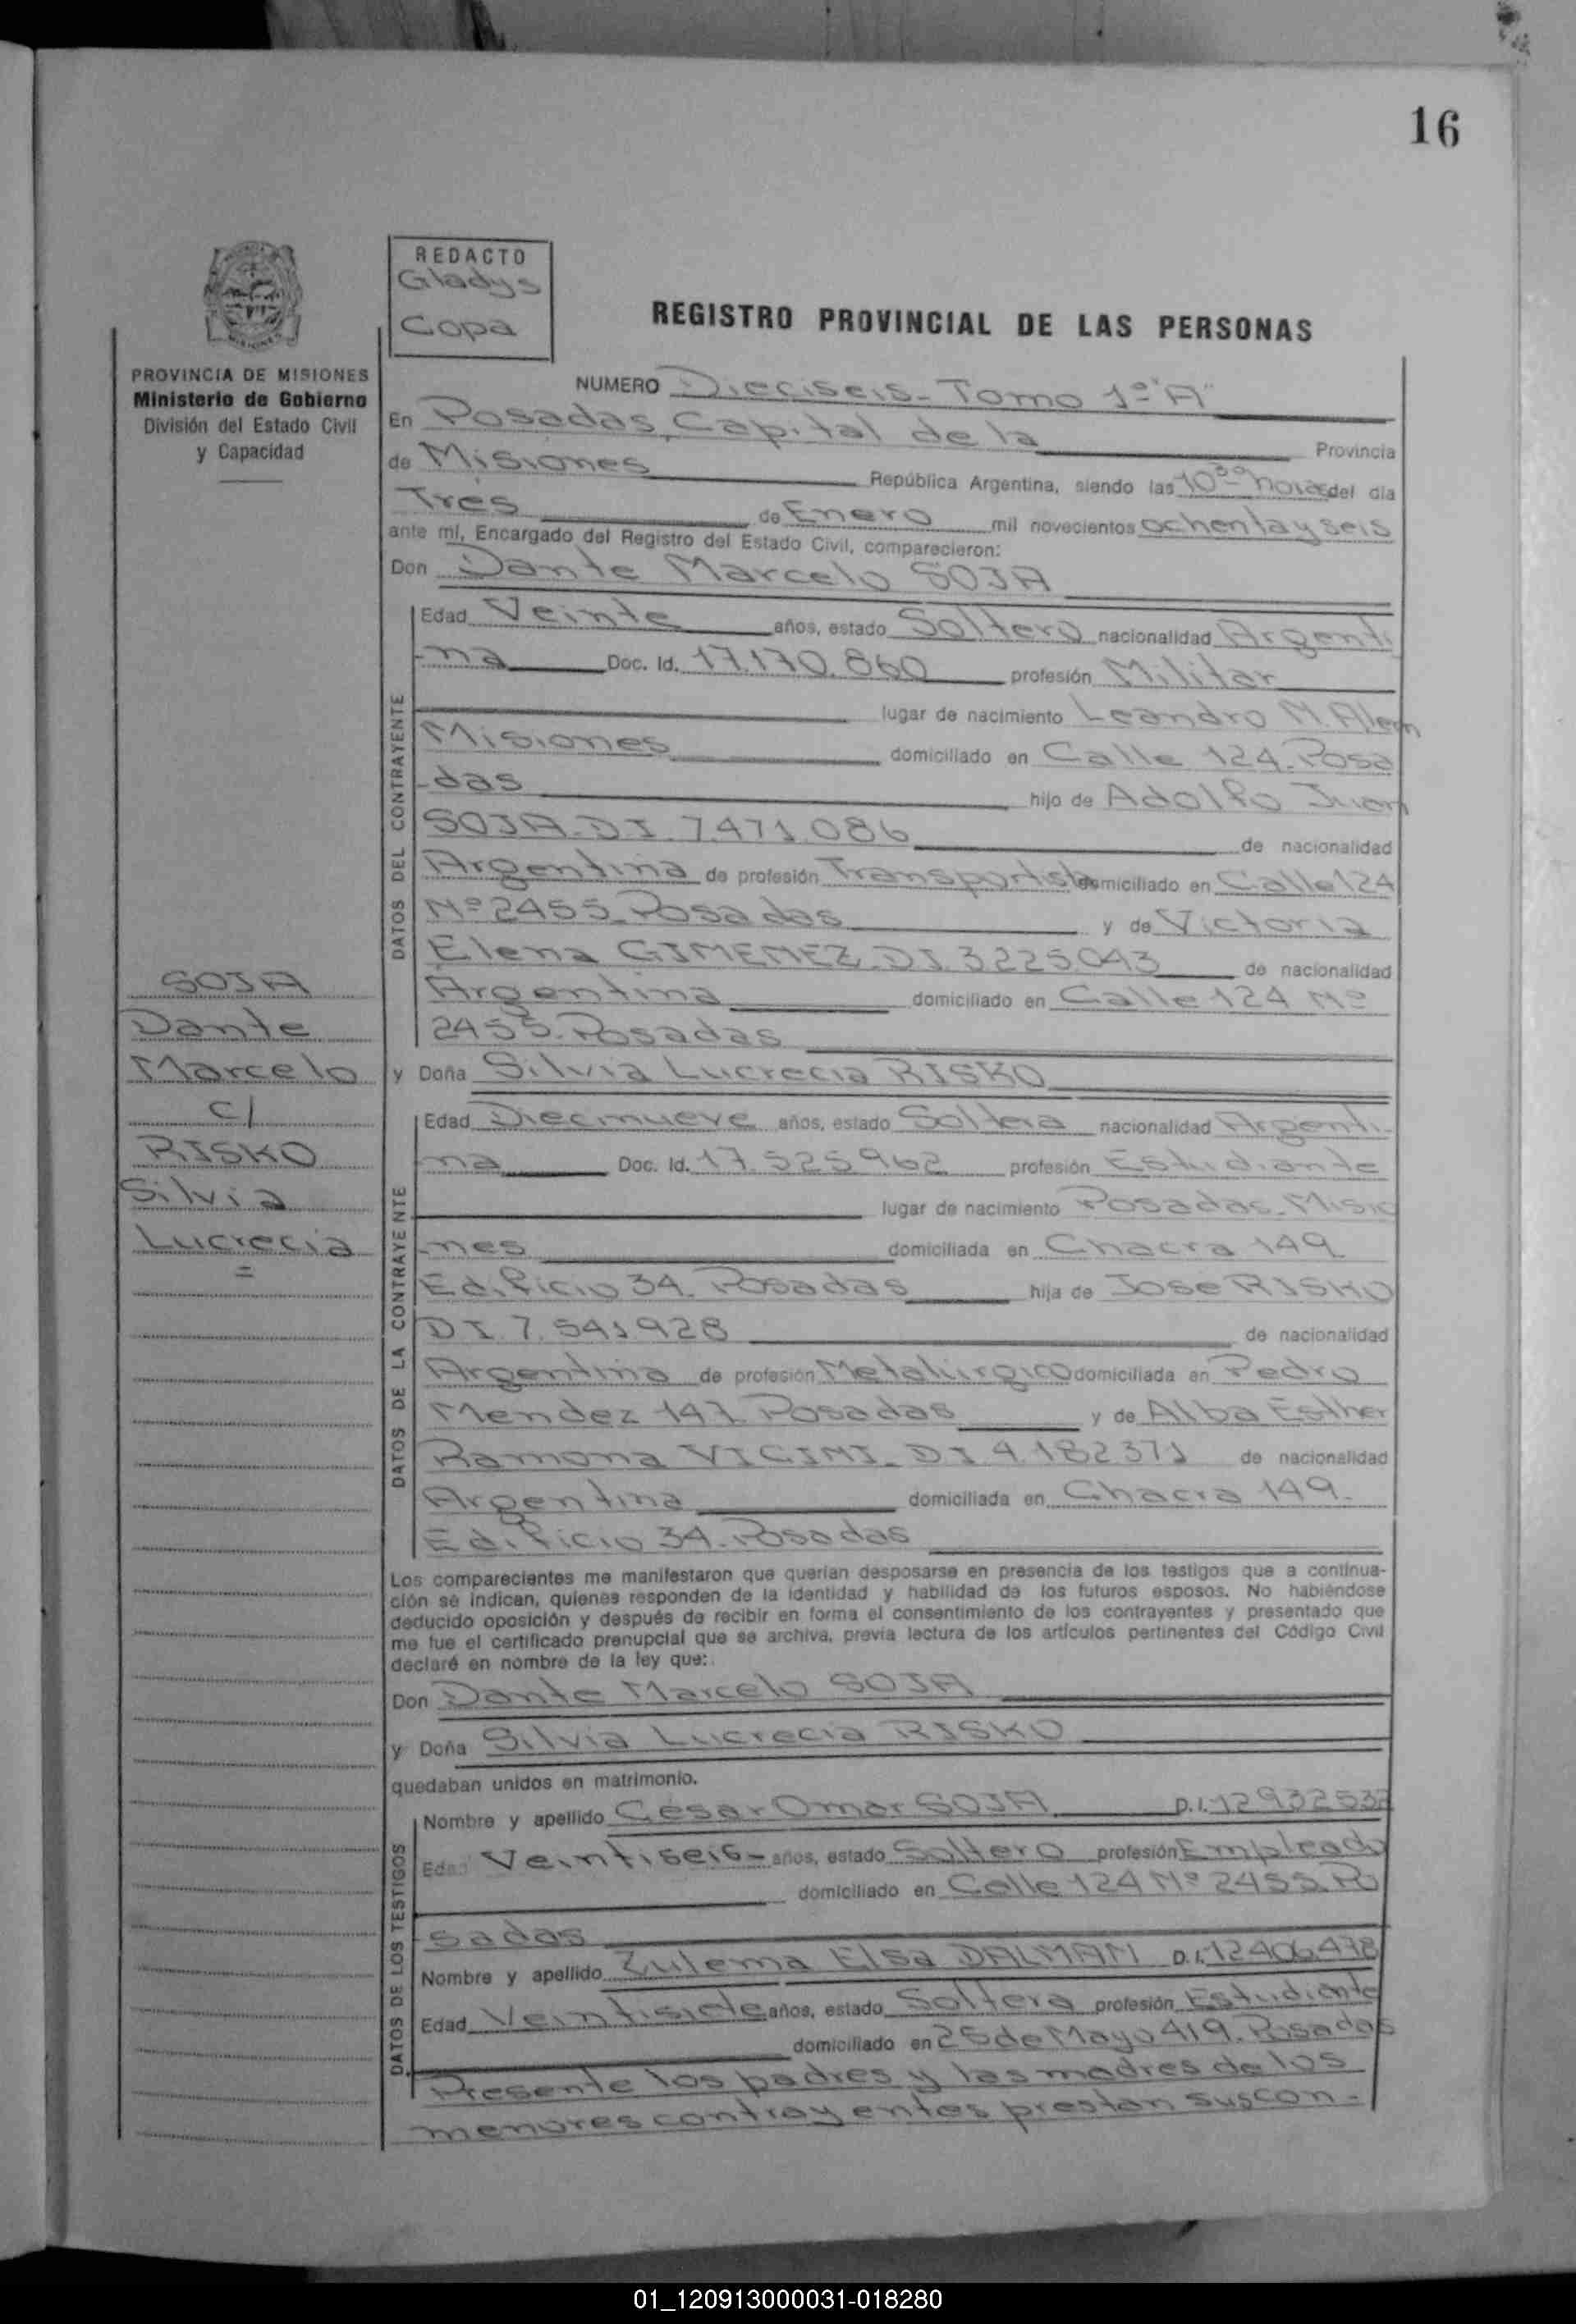 16
REDACTO
Gladys
Copa
REGISTRO PROVINCIAL DE LAS PERSONAS
PROVINCIA DE MISIONES
Ministerio de Gobierno
División del Estado Civil
y Capacidad
NUMERO Dieciseis - Tomo 1º "A"
En Posadas, Capital de la Provincia
de Misiones República Argentina, siendo las 10 30 horas del día
Tres de Enero mil novecientos ochenta y seis
ante mí, Encargado del Registro del Estado Civil, comparecieron:
Don Dante Marcelo SOJA
Edad Veinte años, estado Soltero nacionalidad Argenti
-na Doc. Id. 17.170.860 profesión Militar
lugar de nacimiento Leandro N. Alem
Misiones domiciliado en Calle 124. Posa
-das hijo de Adolfo Juan
SOJA. DI. 7.471.086 de nacionalidad
Argentina de profesión Transportista domiciliado en Calle 124
Nº 2455. Posadas y de Victoria
Elena GIMENEZ. DI. 3225043 de nacionalidad
Argentina domiciliado en Calle 124 Nº
2455. Posadas
y Doña Silvia Lucrecia RISKO
Edad Diecinueve años, estado Soltera nacionalidad Argenti-
na Doc. Id. 17.525962 profesión Estudiante
lugar de nacimiento Posadas. Misio
-nes domiciliada en Chacra 149
Edificio 34. Posadas hija de Jose RISKO
DI. 7.541.928 de nacionalidad
Argentina de profesión Metalúrgico domiciliada en Pedro
Mendez 147. Posadas y de Alba Esther
Ramona VICINI. DI 4.182371 de nacionalidad
Argentina domiciliada en Chacra 149.
Edificio 34. Posadas
DATOS DEL CONTRAYENTE
DATOS DE LA CONTRAYENTE
SOJA
Dante
Marcelo
c/
RISKO
Silvia
Lucrecia
=
Los comparecientes me manifestaron que querían desposarse en presencia de los testigos que a continua-
ción se indican, quienes responden de la identidad y habilidad de los futuros esposos. No habiéndose
deducido oposición y después de recibir en forma el consentimiento de los contrayentes y presentado que
me fue el certificado prenupcial que se archiva, previa lectura de los artículos pertinentes del Código Civil
declaré en nombre de la ley que:
Don Dante Marcelo SOJA
y Doña Silvia Lucrecia RISKO
quedaban unidos en matrimonio.
DATOS DE LOS TESTIGOS
Nombre y apellido César Omar SOJA D.I. 12932532
Edad Veintiseis - años, estado Soltero profesión Empleado
domiciliado en Calle 124 Nº 2455. Po
sadas
Nombre y apellido Zulema Elsa DALMAN D.I. 12406478
Edad Veintisiete años, estado Soltera profesión Estudiante
domiciliado en 25 de Mayo 419. Posadas
Presente los padres y las madres de los
menores contrayentes prestan sus con-
01_120913000031-018280